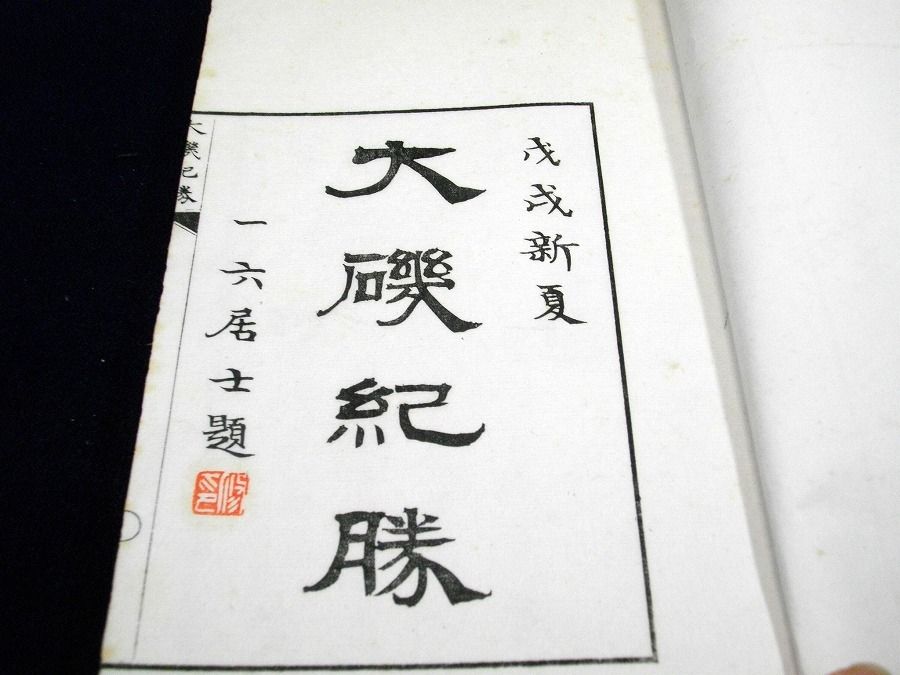 戊戌新夏
大磯紀勝
一六居士題
大磯紀勝